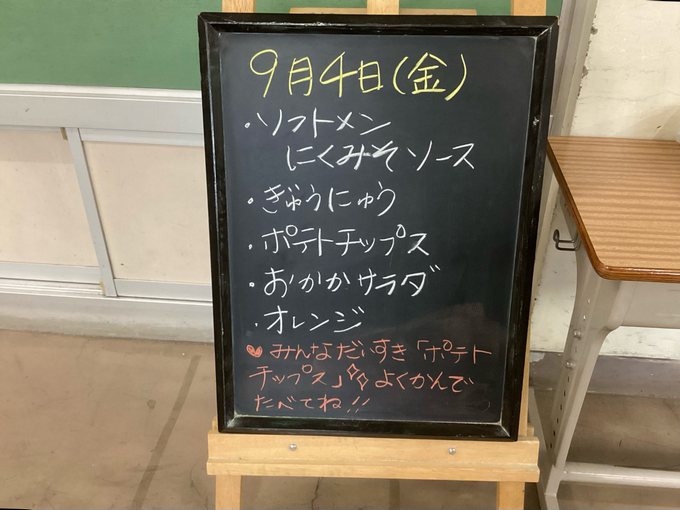 9月4日(金)
・ソフトメン
にくみそソース
・ぎゅうにゅう
・ポテトチップス
・おかかサラダ
・オレンジ
♥みんなだいすき「ポテト
チップス」よくかんで
たべてね!!